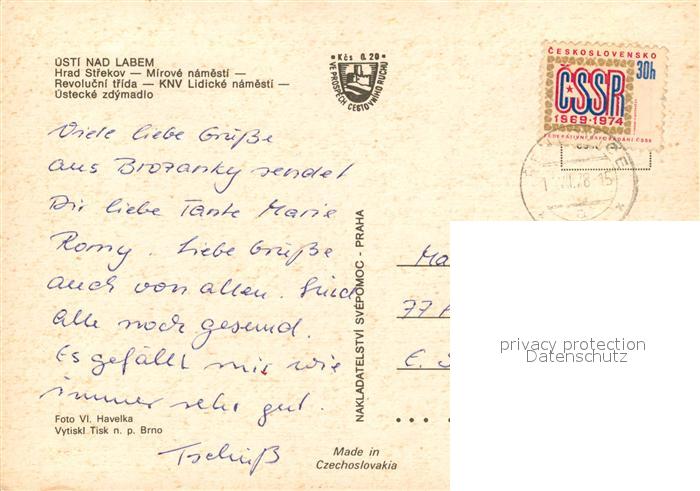 ÚSTÍ NAD LABEM
Hrad Střekov — Mírové náměstí —
Revoluční třída — KNV Lidické náměstí —
Ústecké zdýmadlo
Kčs 0.20
VE PROSPĚCH CESTOVNÍHO RUCHU
ČESKOSLOVENSKO
30h
ČSSR
1969-1974
FEDERATIVNÍ USPOŘÁDÁNÍ ČSSR
Viele liebe Grüße
aus Brozanky sendet
Dir liebe Tante Marie
Romy. Liebe Grüße
auch von allen. Sind
alle noch gesund.
Es gefällt mir wie
immer sehr gut.
Tschüß
Foto Vl. Havelka
Vytiskl Tisk n. p. Brno
NAKLADATELSTVÍ SVÉPOMOC - PRAHA
Made in
Czechoslovakia
Ma
77
privacy protection
Datenschutz